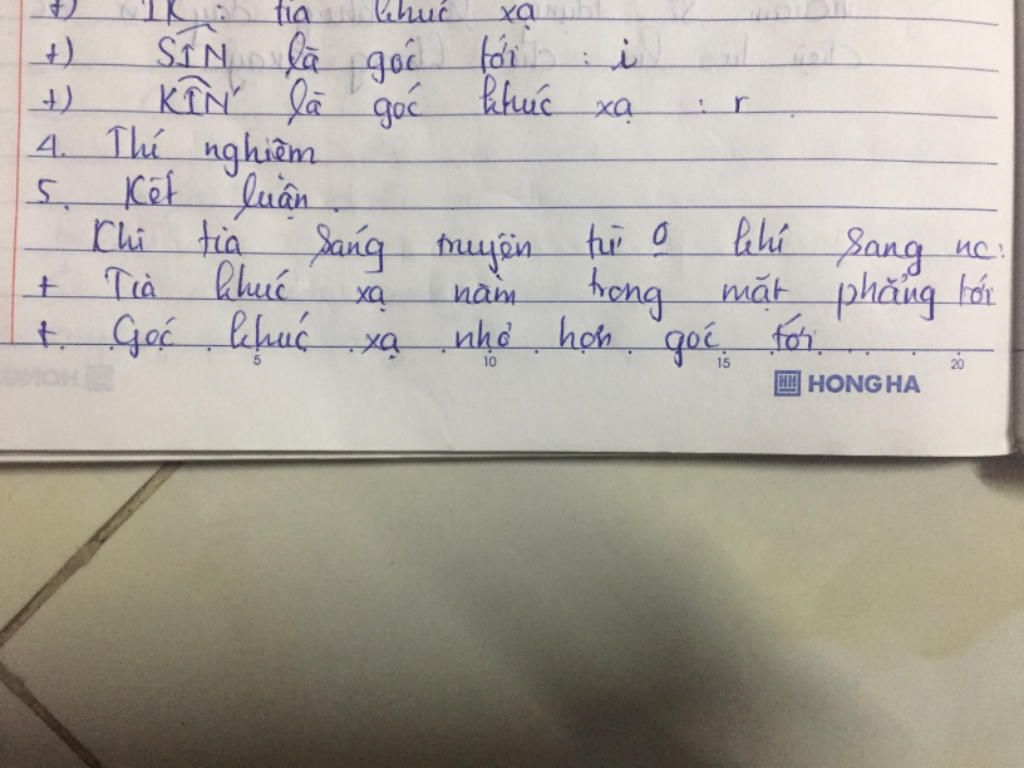 +) IK : tia khúc xạ
+) SIN là góc tới : i
+) KIN' là góc khúc xạ : r
4. Thí nghiệm
5. Kết luận.
Khi tia sáng truyện từ o khí sang nc:
+ Tia khúc xạ nằm trong mặt phẳng tới
+. Góc khúc xạ nhỏ hơn góc tới.
5 10 15 20
HH HONG HA